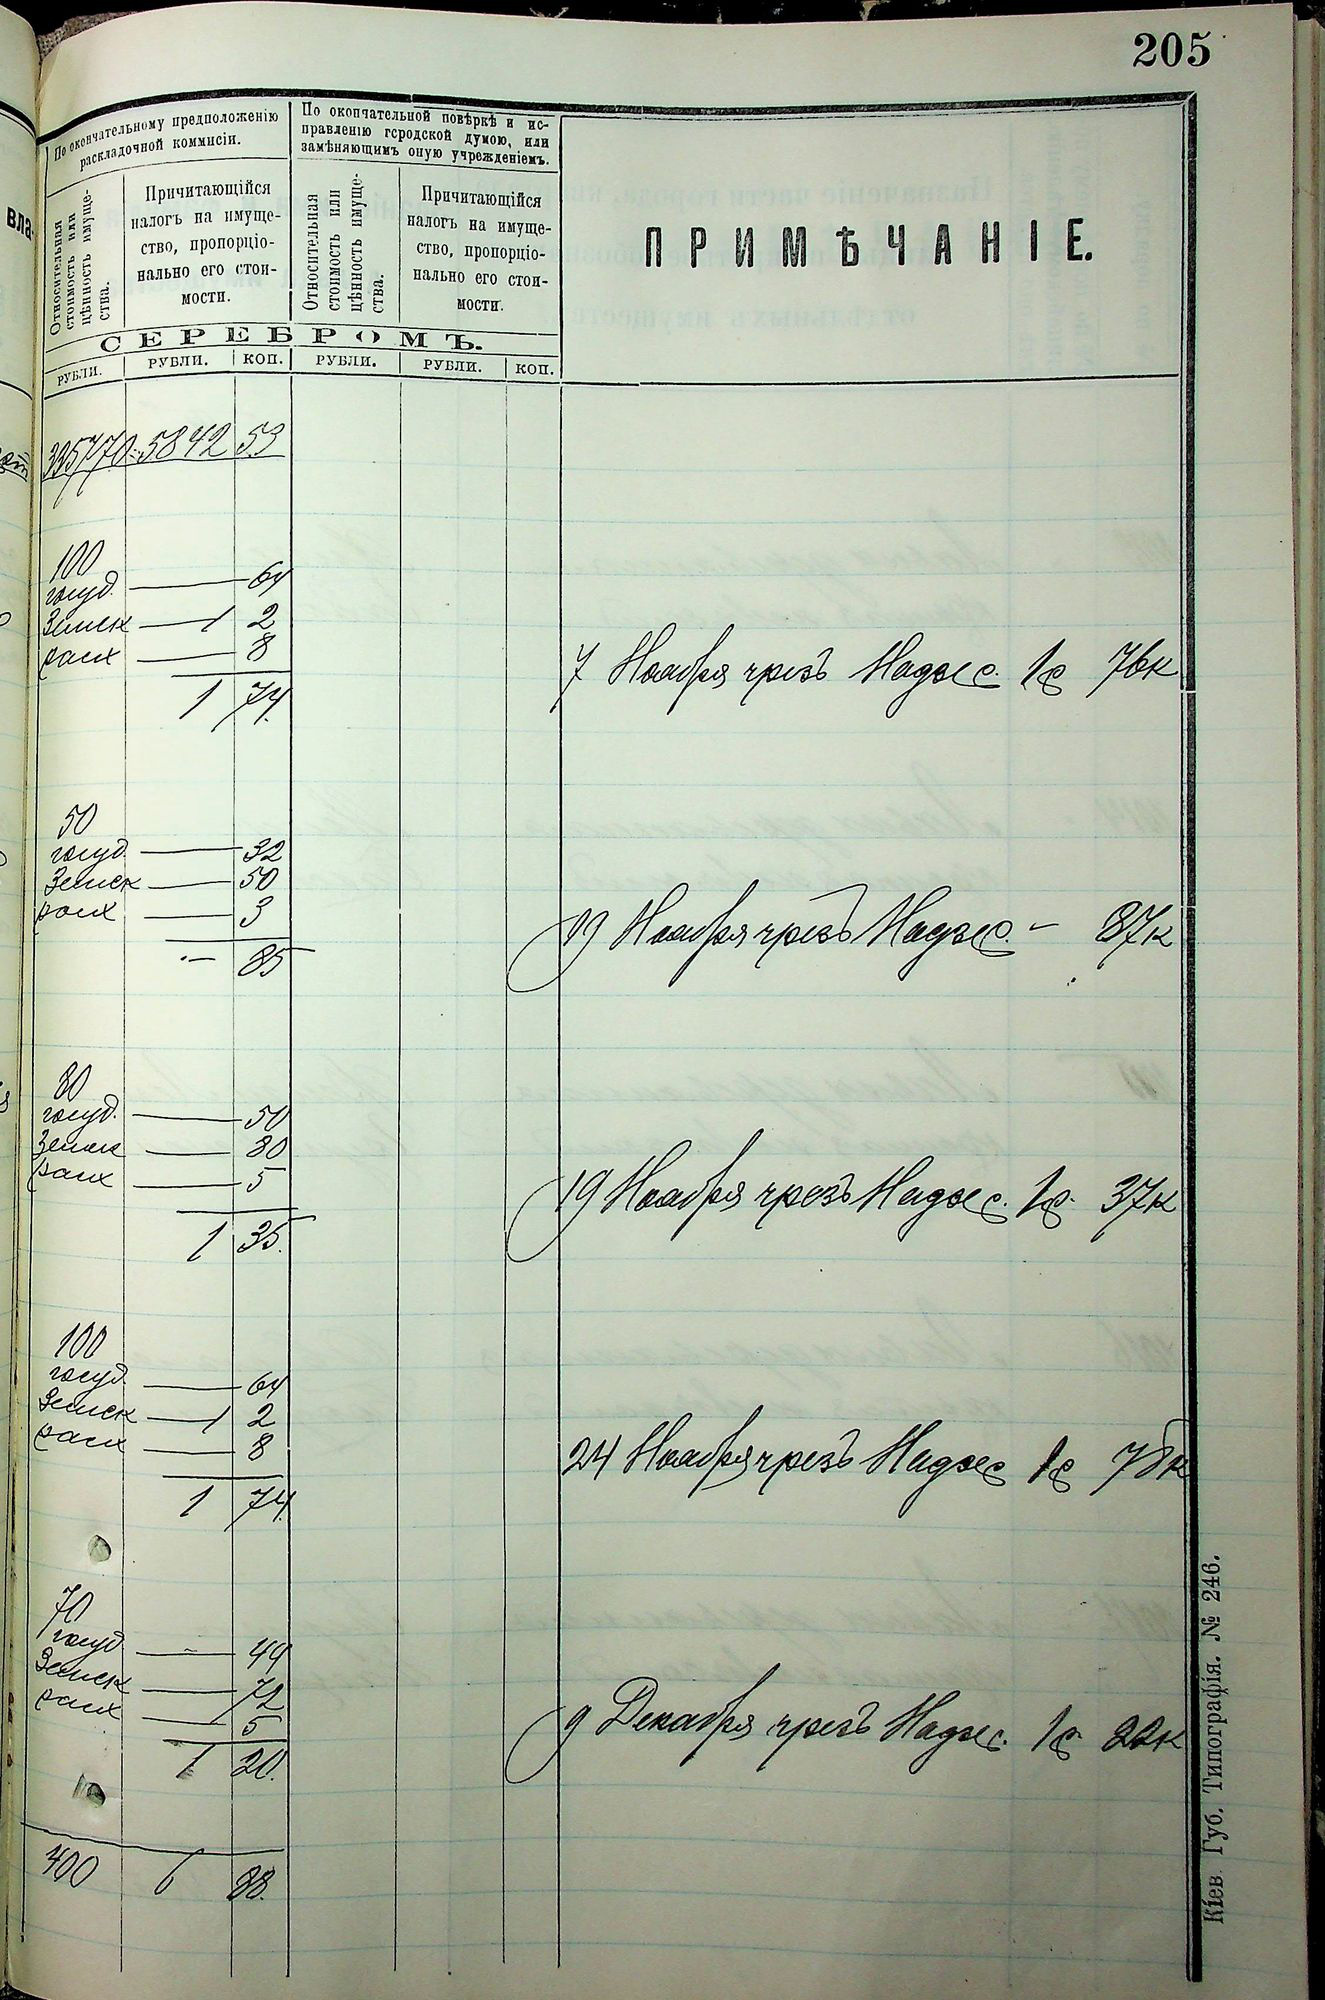 205
По окончательному предположенію
раскладочной коммисіи.
По окончательной повѣркѣ и ис-
правленію городской думою, или
замѣняющимъ оную учрежденіемъ.
Относительная
стоимость или
цѣнность имуще-
ства.
Причитающійся
налогъ на имуще-
ство, пропорціо-
нально его стои-
мости.
Относительная
стоимость или
цѣнность имуще-
ства.
Причитающійся
налогъ на имуще-
ство, пропорціо-
нально его стои-
мости.
ПРИМѢЧАНІЕ.
СЕРЕБРОМЪ.
РУБЛИ. РУБЛИ. КОП. РУБЛИ. РУБЛИ. КОП.
вла-
335770 5842 53
100
госуд. — 64
Земск — 1 2
расх — 8
1 74.
7 Ноября чрезъ Надзс. 1р 76к
50
госуд. — 32
Земск — 50
расх — 3
— 85
19 Ноября чрезъ Надзс. — 87к
80
госуд. — 50
Земск — 80
расх — 5
1 35.
19 Ноября чрезъ Надзс. 1р. 37к
100
госуд. — 64
Земск — 1 2
расх — 8
1 74.
24 Ноября чрезъ Надзс 1р 76к
70
госуд — 44
Земск — 72
расх — 5
1 20.
9 Декабря чрезъ Надзс. 1р 22к
400 6 88.
Кіев. Губ. Типографія. № 246.